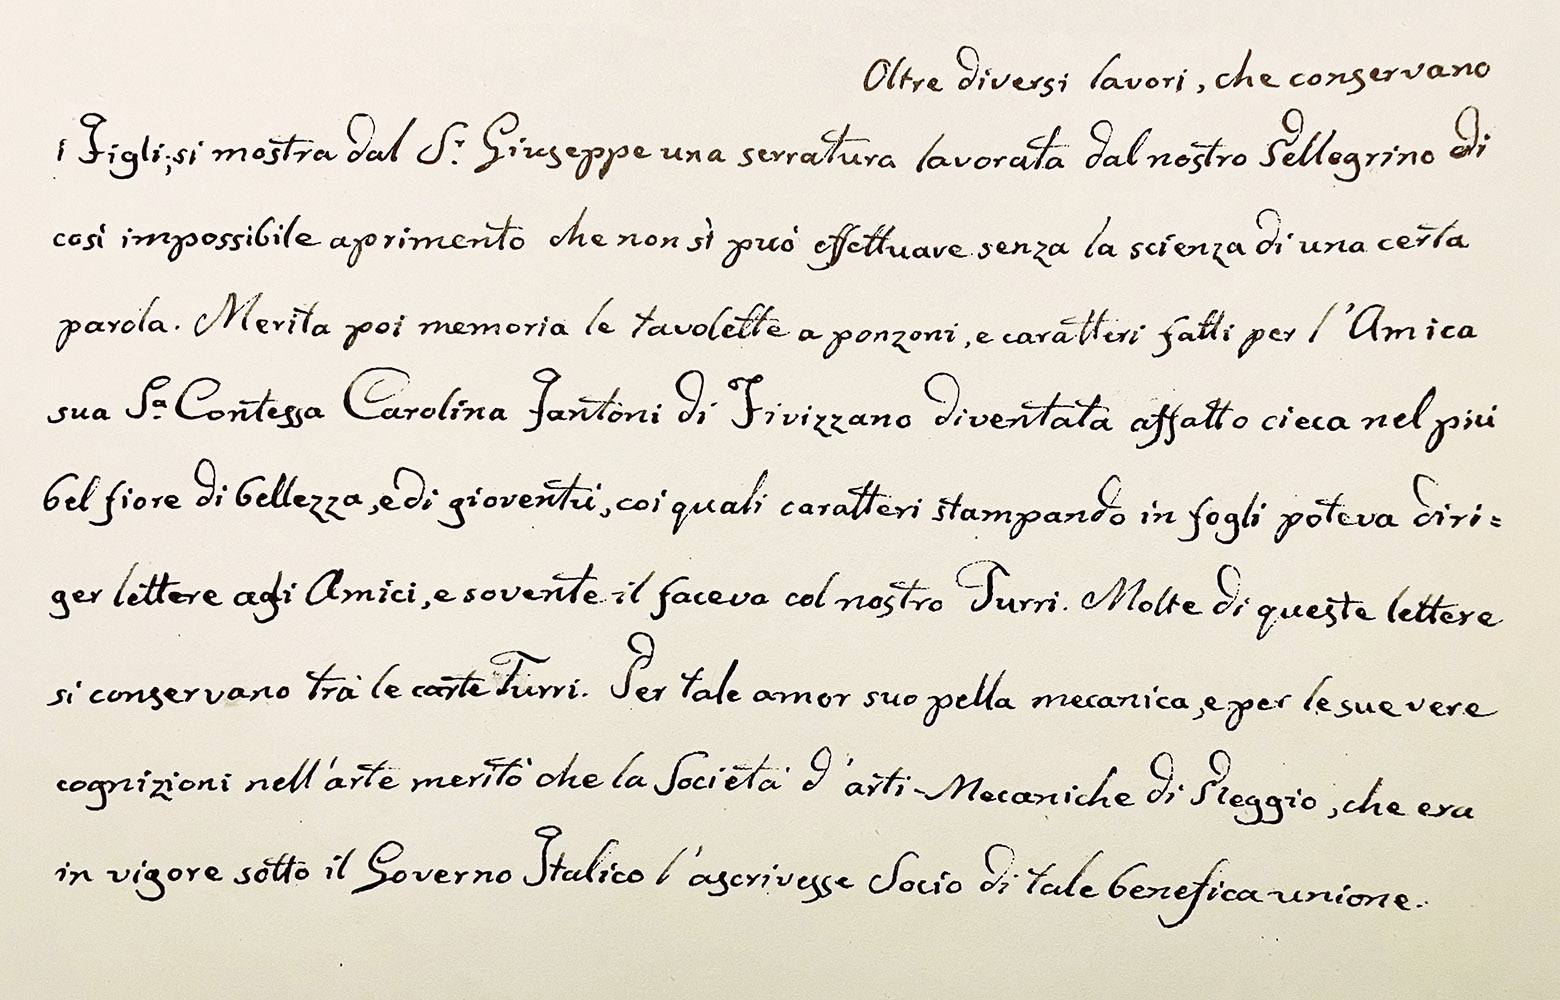 Oltre diversi lavori, che conservano
i Figli; si mostra dal S.r Giuseppe una serratura lavorata dal nostro Pellegrino di
così impossibile aprimento che non sì può effettuare senza la scienza di una certa
parola. Merita poi memoria le tavolette a ponzoni, e caratteri fatti per l'Amica
sua S.a Contessa Carolina Fantoni di Fivizzano diventata affatto cieca nel più
bel fiore di bellezza, e di gioventù, coi quali caratteri stampando in fogli poteva diri=
ger lettere agli Amici, e sovente il faceva col nostro Turri. Molte di queste lettere
si conservano trà le carte Turri. Per tale amor suo pella mecanica, e per le sue vere
cognizioni nell'arte meritò che la Società d'arti-Mecaniche di Reggio, che era
in vigore sotto il Governo Italico l'ascrivesse Socio di tale benefica unione.